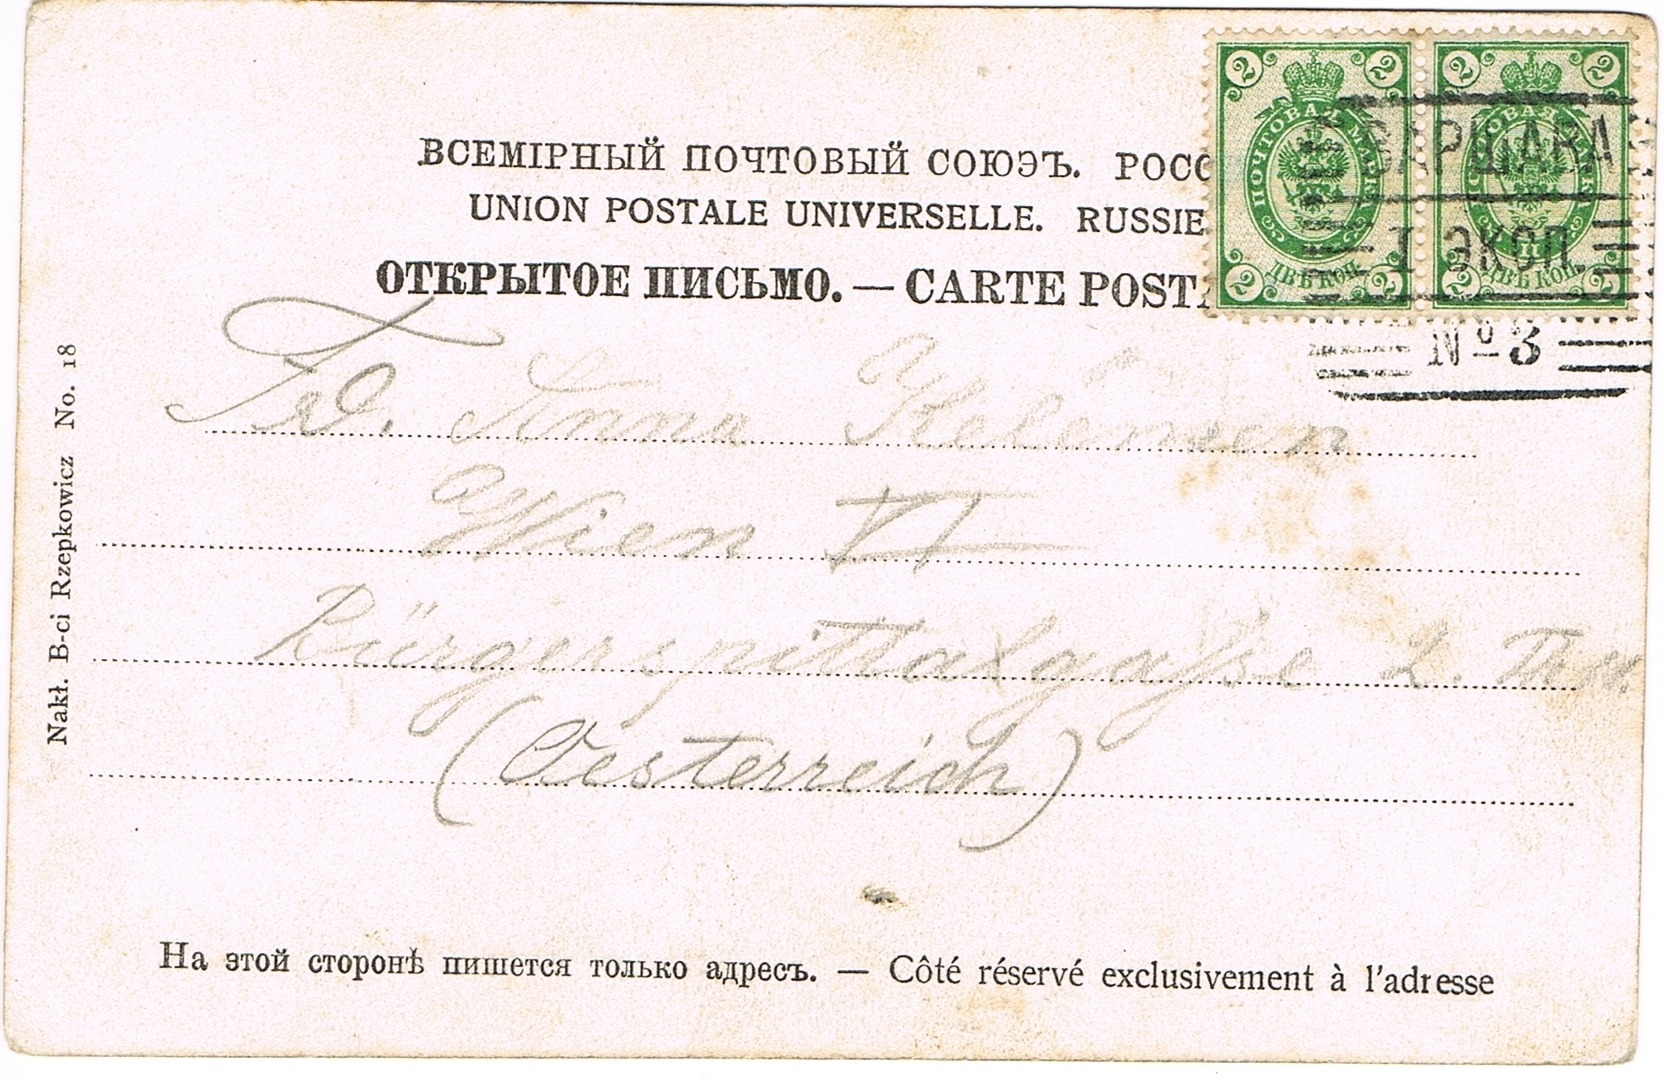 ВСЕМІРНЫЙ ПОЧТОВЫЙ СОЮЭЪ. РОСС
UNION POSTALE UNIVERSELLE. RUSSIE
ОТКРЫТОЕ ПИСЬМО. — CARTE POSTA
2 2 2 2
ПОЧТОВАЯ МАРКА
ДВѢ КОП.
2 2 2 2
ВАРШАВА
I ЭКСП.
№ 3
Anna Kelemen
Wien VI
Bürgerspittalgasse 2. Th.
(Oesterreich)
Nakł. B-ci Rzepkowicz No. 18
На этой сторонѣ пишется только адресъ. — Côté réservé exclusivement à l'adresse